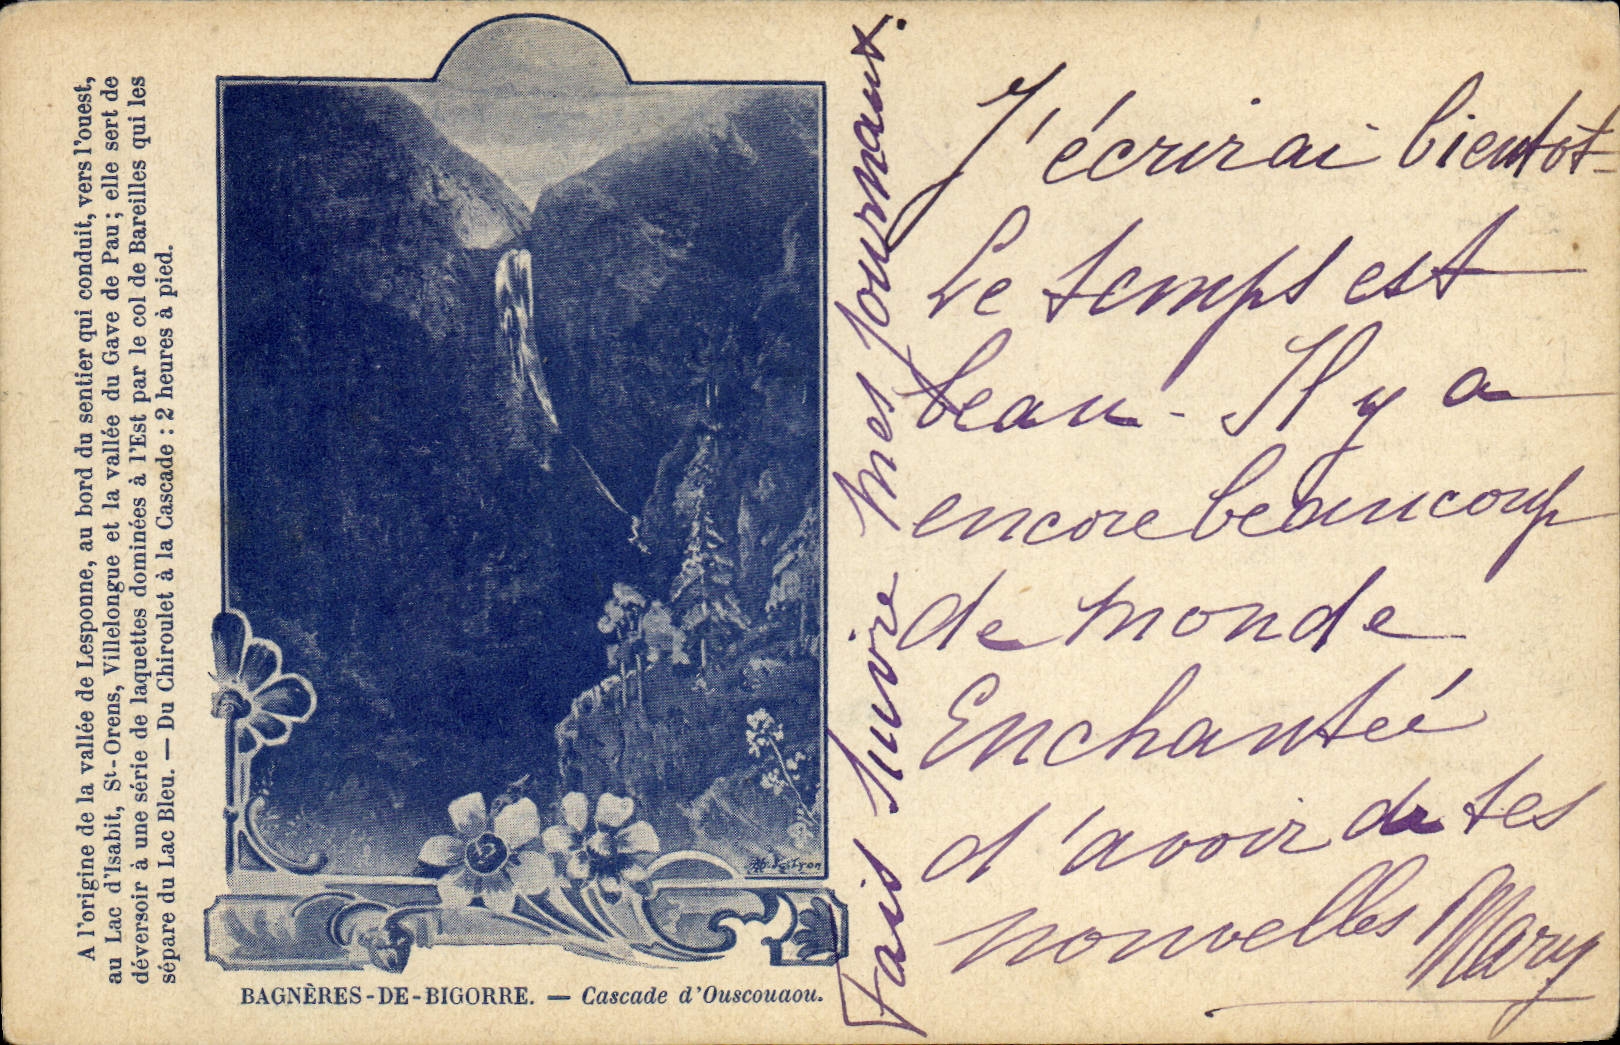 A l'origine de la vallée de Lesponne, au bord du sentier qui conduit, vers l'ouest,
au Lac d'Isabit, St-Orens, Villelongue et la vallée du Gave de Pau ; elle sert de
déversoir à une série de laquettes dominées à l'Est par le col de Bareilles qui les
sépare du Lac Bleu. — Du Chiroulet à la Cascade : 2 heures à pied.
BAGNÈRES-DE-BIGORRE. — Cascade d'Ouscouaou.
Fais suivre mes journaux.
J'écrirai bientôt-
Le temps est
beau - Il y a
encore beaucoup
de monde
Enchantée
d'avoir de tes
nouvelles Mary